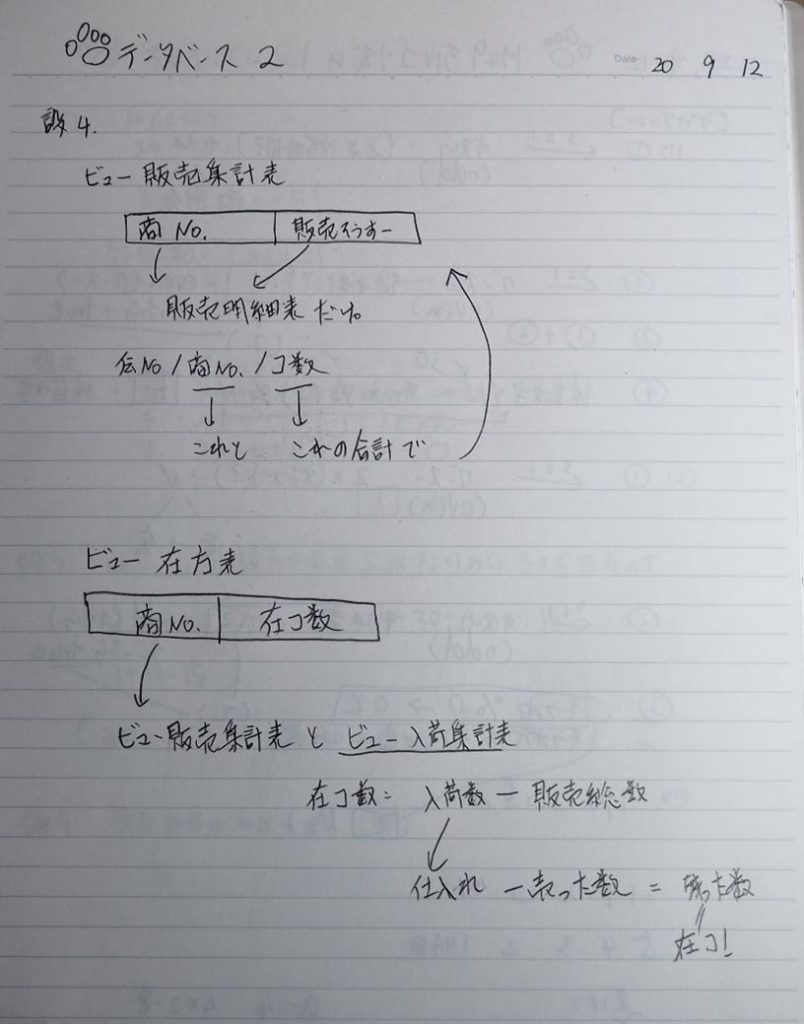 データベース 2
Date 20 9 12
設4.
ビュー 販売集計表
商No. 販売そうすー
販売明細表 だけ。
伝No / 商No. / コ数
これと これの合計で
ビュー 在方表
商No. 在コ数
ビュー販売集計表 と ビュー入荷集計表
在コ数 = 入荷数 ー 販売総数
仕入れ ー 売った数 = 残った数
在コ!